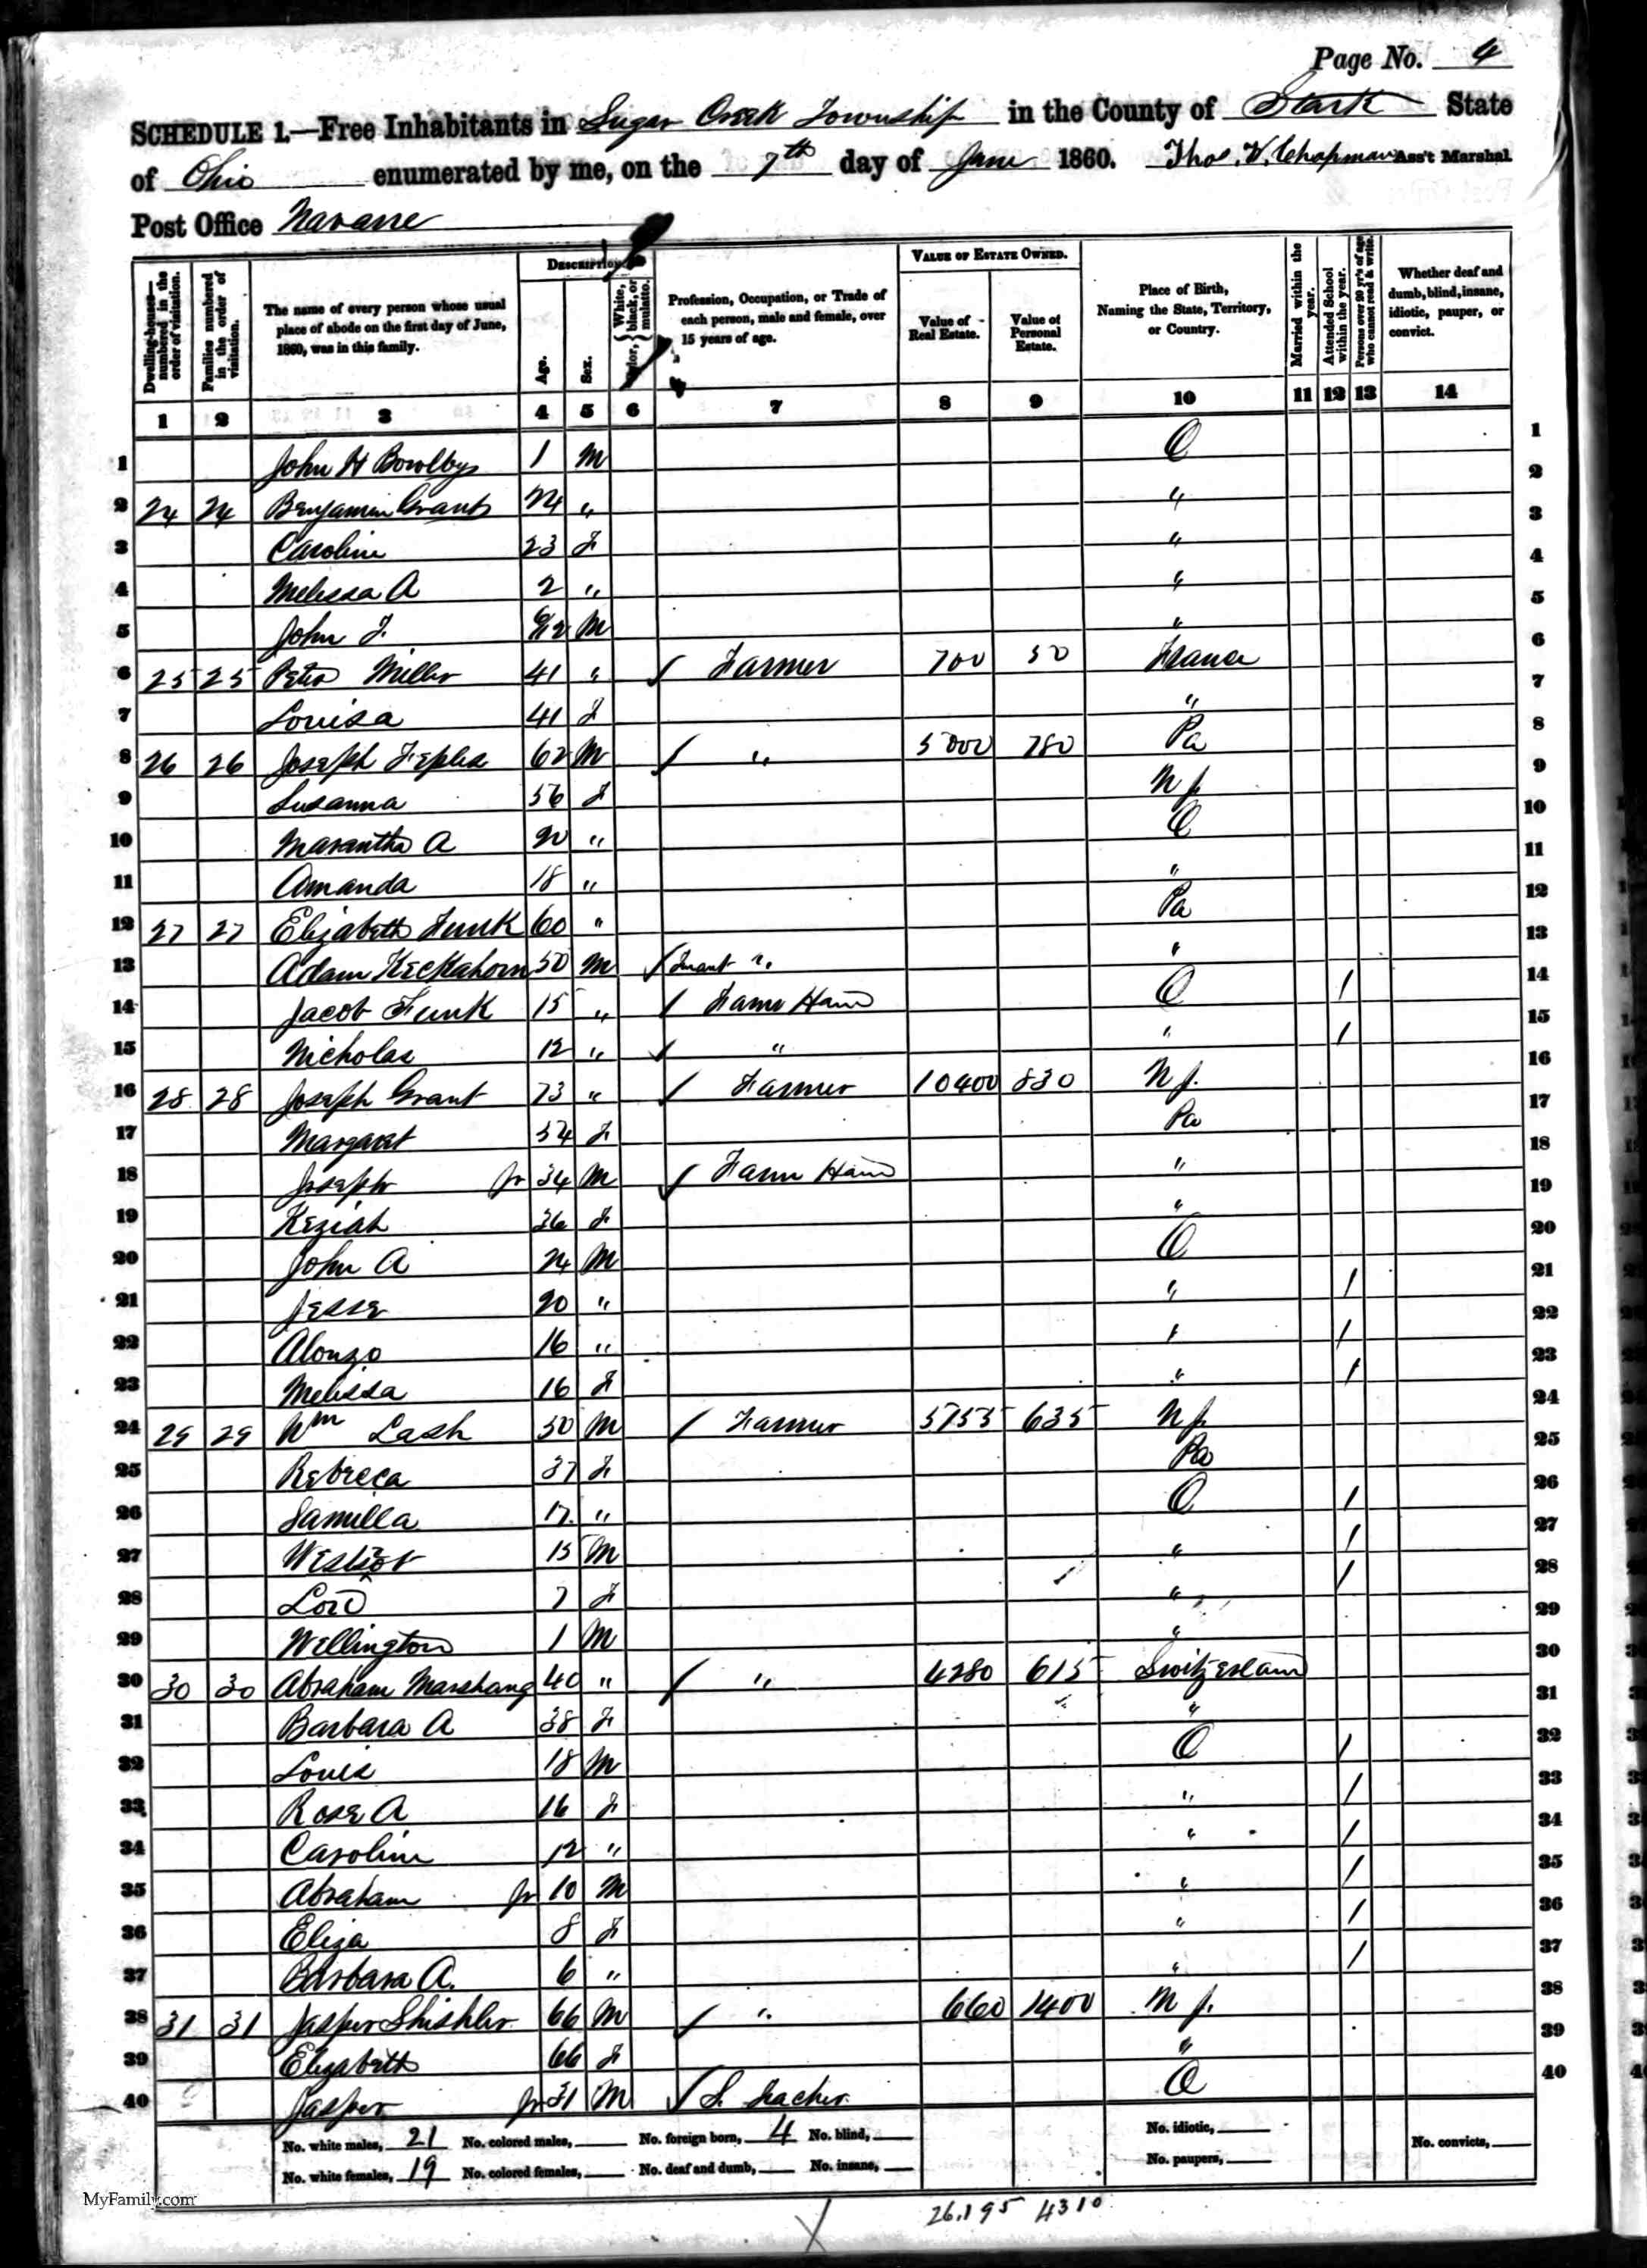 Page No. 4
SCHEDULE 1.—Free Inhabitants in Sugar Creek Township in the County of Stark State
of Ohio enumerated by me, on the 7th day of June 1860. Thos. W. Chapman Ass't Marshal
Post Office Navarre
DESCRIPTION
VALUE OF ESTATE OWNED.
Dwelling-houses—numbered in the order of visitation.
Families numbered in the order of visitation.
The name of every person whose usual place of abode on the first day of June, 1860, was in this family.
Age.
Sex.
Color, { White, black, or mulatto.
Profession, Occupation, or Trade of each person, male and female, over 15 years of age.
Value of Real Estate.
Value of Personal Estate.
Place of Birth, Naming the State, Territory, or Country.
Married within the year.
Attended School within the year.
Persons over 20 yr's of age who cannot read & write.
Whether deaf and dumb, blind, insane, idiotic, pauper, or convict.
1 2 3 4 5 6 7 8 9 10 11 12 13 14
1 John H Bowlby 1 M O 1
2 24 24 Benjamin Grant 24 " " 2
3 Caroline 23 F " 3
4 Melissa A 2 " " 4
5 John F. 6/12 M " 5
6 25 25 Peter Miller 41 " / Farmer 700 50 France 6
7 Louisa 41 F " 7
8 26 26 Joseph 62 M / " 5000 780 Pa 8
9 Susanna 56 F N J. 9
10 Marantha A 20 " O 10
11 Amanda 18 " " 11
12 27 27 Elizabeth Funk 60 " Pa 12
13 Adam Keckahorn 50 M / " 13
14 Jacob Funk 15 " / Farm Hand O / 14
15 Nicholas 12 " / " " / 15
16 28 28 Joseph Grant 73 " / Farmer 10400 830 N J. 16
17 Margaret 54 F Pa 17
18 Joseph Jr 34 M / Farm Hand " 18
19 Keziah 36 F " 19
20 John A 24 M O 20
21 Jesse 20 " " / 21
22 Alonzo 16 " " / 22
23 Melissa 16 F " / 23
24 29 29 Wm Lash 50 M / Farmer 5755 635 N J. 24
25 Rebecca 37 F Pa 25
26 17 " O / 26
27 15 M " / 27
28 7 F " / 28
29 Wellington 1 M " 29
30 30 30 Abraham Marshang 40 " / " 4280 615 Switzerland 30
31 Barbara A 38 F " 31
32 Louis 18 M O / 32
33 Rose A 16 F " / 33
34 Caroline 12 " " / 34
35 Abraham Jr 10 M " / 35
36 Eliza 8 F " / 36
37 Barbara A. 6 " " / 37
38 31 31 Jasper Shishler 66 M / " 660 1400 N J. 38
39 Elizabeth 66 F " 39
40 Jasper Jr 31 M / S. Teacher O 40
No. white males, 21 No. colored males, No. foreign born, 4 No. blind, No. idiotic,
No. convicts,
No. white females, 19 No. colored females, No. deaf and dumb, No. insane, No. paupers,
MyFamily.com
26.195 4310